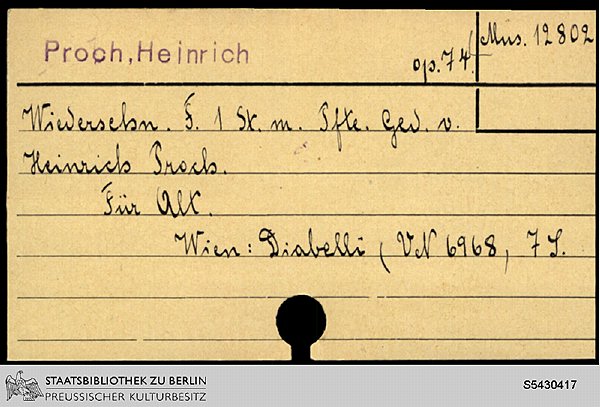 Proch, Heinrich
Mus. 12802
op. 74.
Wiedersehn. F. 1 St. m. Pfte. Ged. v.
Heinrich Proch.
Für Alt.
Wien: Diabelli (VN 6968, 7 S.
STAATSBIBLIOTHEK ZU BERLIN
PREUSSISCHER KULTURBESITZ
S5430417